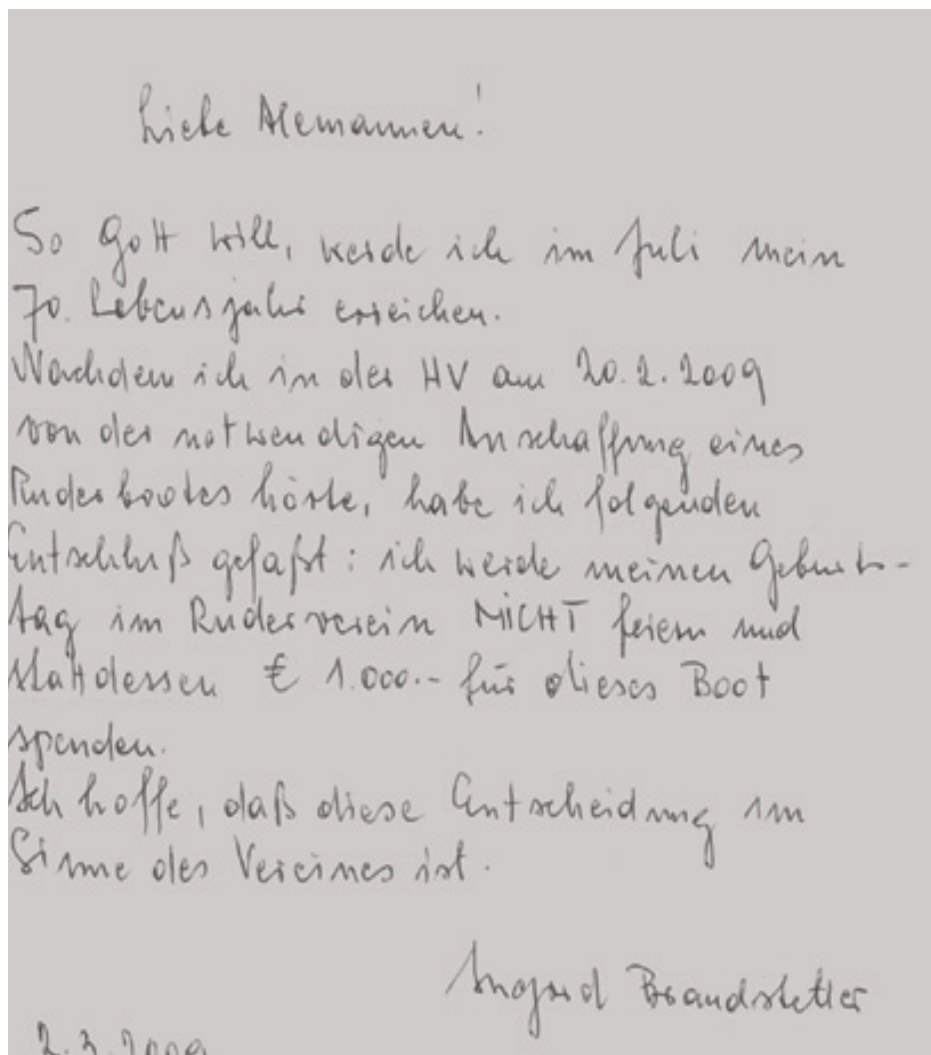 Liebe Alemannen!
So Gott will, werde ich im Juli mein
70. Lebensjahr erreichen.
Nachdem ich in der HV am 20.2.2009
von der notwendigen Anschaffung eines
Ruderbootes hörte, habe ich folgenden
Entschluß gefaßt: ich werde meinen Geburts-
tag im Ruderverein NICHT feiern und
stattdessen € 1.000.- für dieses Boot
spenden.
Ich hoffe, daß diese Entscheidung im
Sinne des Vereines ist.
Ingrid Brandstetter
2.3.2009